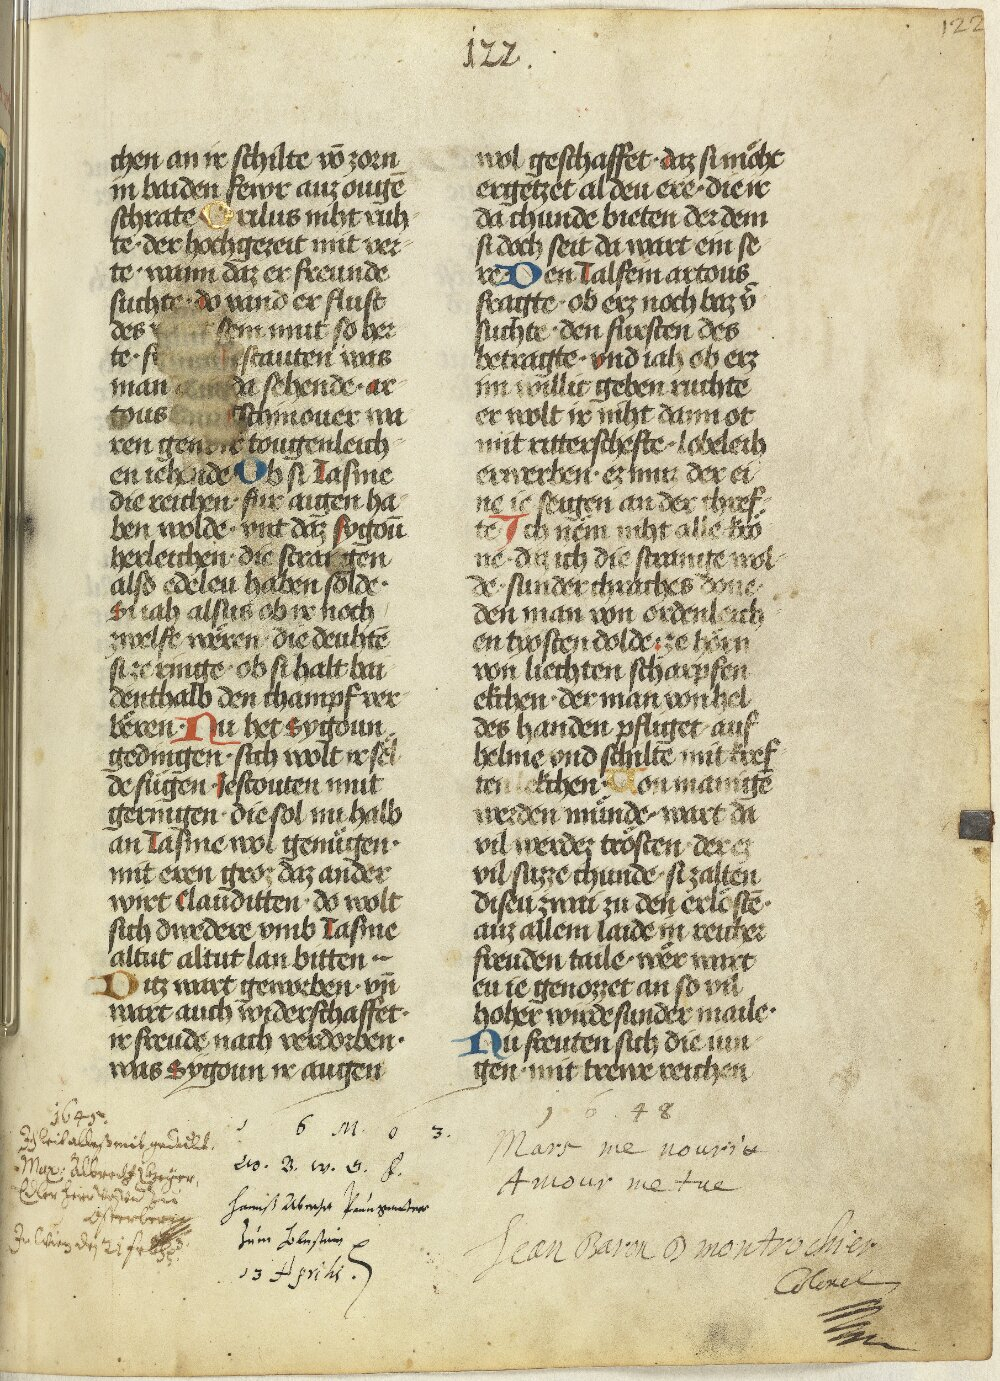 122
122.
chen an ir schilte võ zorn
in baiden fewr auz ougē
schrate Erilus niht růh
te · der hochgezeit mit ver
te · wann daz er freunde
suchte · do vand er flust
des sein mut so her
te · scauten was
man da sehende · ar
tous Tschinouer wa
ren tougenleich
en iehende Ob si Iasme
die reichen · fur augen ha
ben wolde · vnt daz sygoun
herleichen · die starken
also edeleu haben solde ·
Si iah alsus ob ir noch
zwelfe weren · die deuhtē
si ze ringe · ob si halt bai
denthalb den champf ver
beren · Nu het Sygoun
gedingen · sich wolt ir sel
de fugen · Iescouten mut
geringen · die sol nu halb
an Iasme wol genugen ·
mit eren groz daz ander
wirt Clauditten · do wolt
sich dwedere vmb Iasme
altut altut lan bitten
Ditz wart geworben · vn̄
wart auch widerschaffet ·
ir freude nach verdorben ·
was Sygoun ir augen
wol geschaffet · daz si moht
ergetzet al den ere · die ir
da chunde bieten der dem
si doch seit da wart ein se
re · Den Talfein artous
fragte · ob erz noch baz v̊
suchte · den fursten des
betragte · vnd iah ob erz
im willic geben ruchte
er wolt ir niht dann ot
mit ritterschefte · lobeleich
erwerben · ez muz der ei
ne ie seigen an der chref
te Ich nem niht alle kro
ne · da ich die strauze wol
de · sunder chraches done ·
den man von ordenleich
en tiosten dolde · ze horn
von liechten scharpfen
ekchen · der man von hel
des handen pfliget · auf
helme vnd schilte mit kref
ten lekchen · Von manigē
werden munde · wart da
vil werdez trosten · der ez
vil suzze chunde · si zalten
diseu zwai zu den erlostē ·
auz allem laide in reicher
freuden taile · wer wart
eu ie genozzet an so vil
hoher wirde sunder maile ·
Nu freuten sich die iun
gen · mit trewe reichen
1645.
Max: Albrecht
Osterberg
In Wien den 21
1 6 M 0 3.
W. B. W. G. F.
13 Aprilis.
1 6 4 8
Mars me nourit
Amour me tue
Jean Baron D montrochier
Colonel